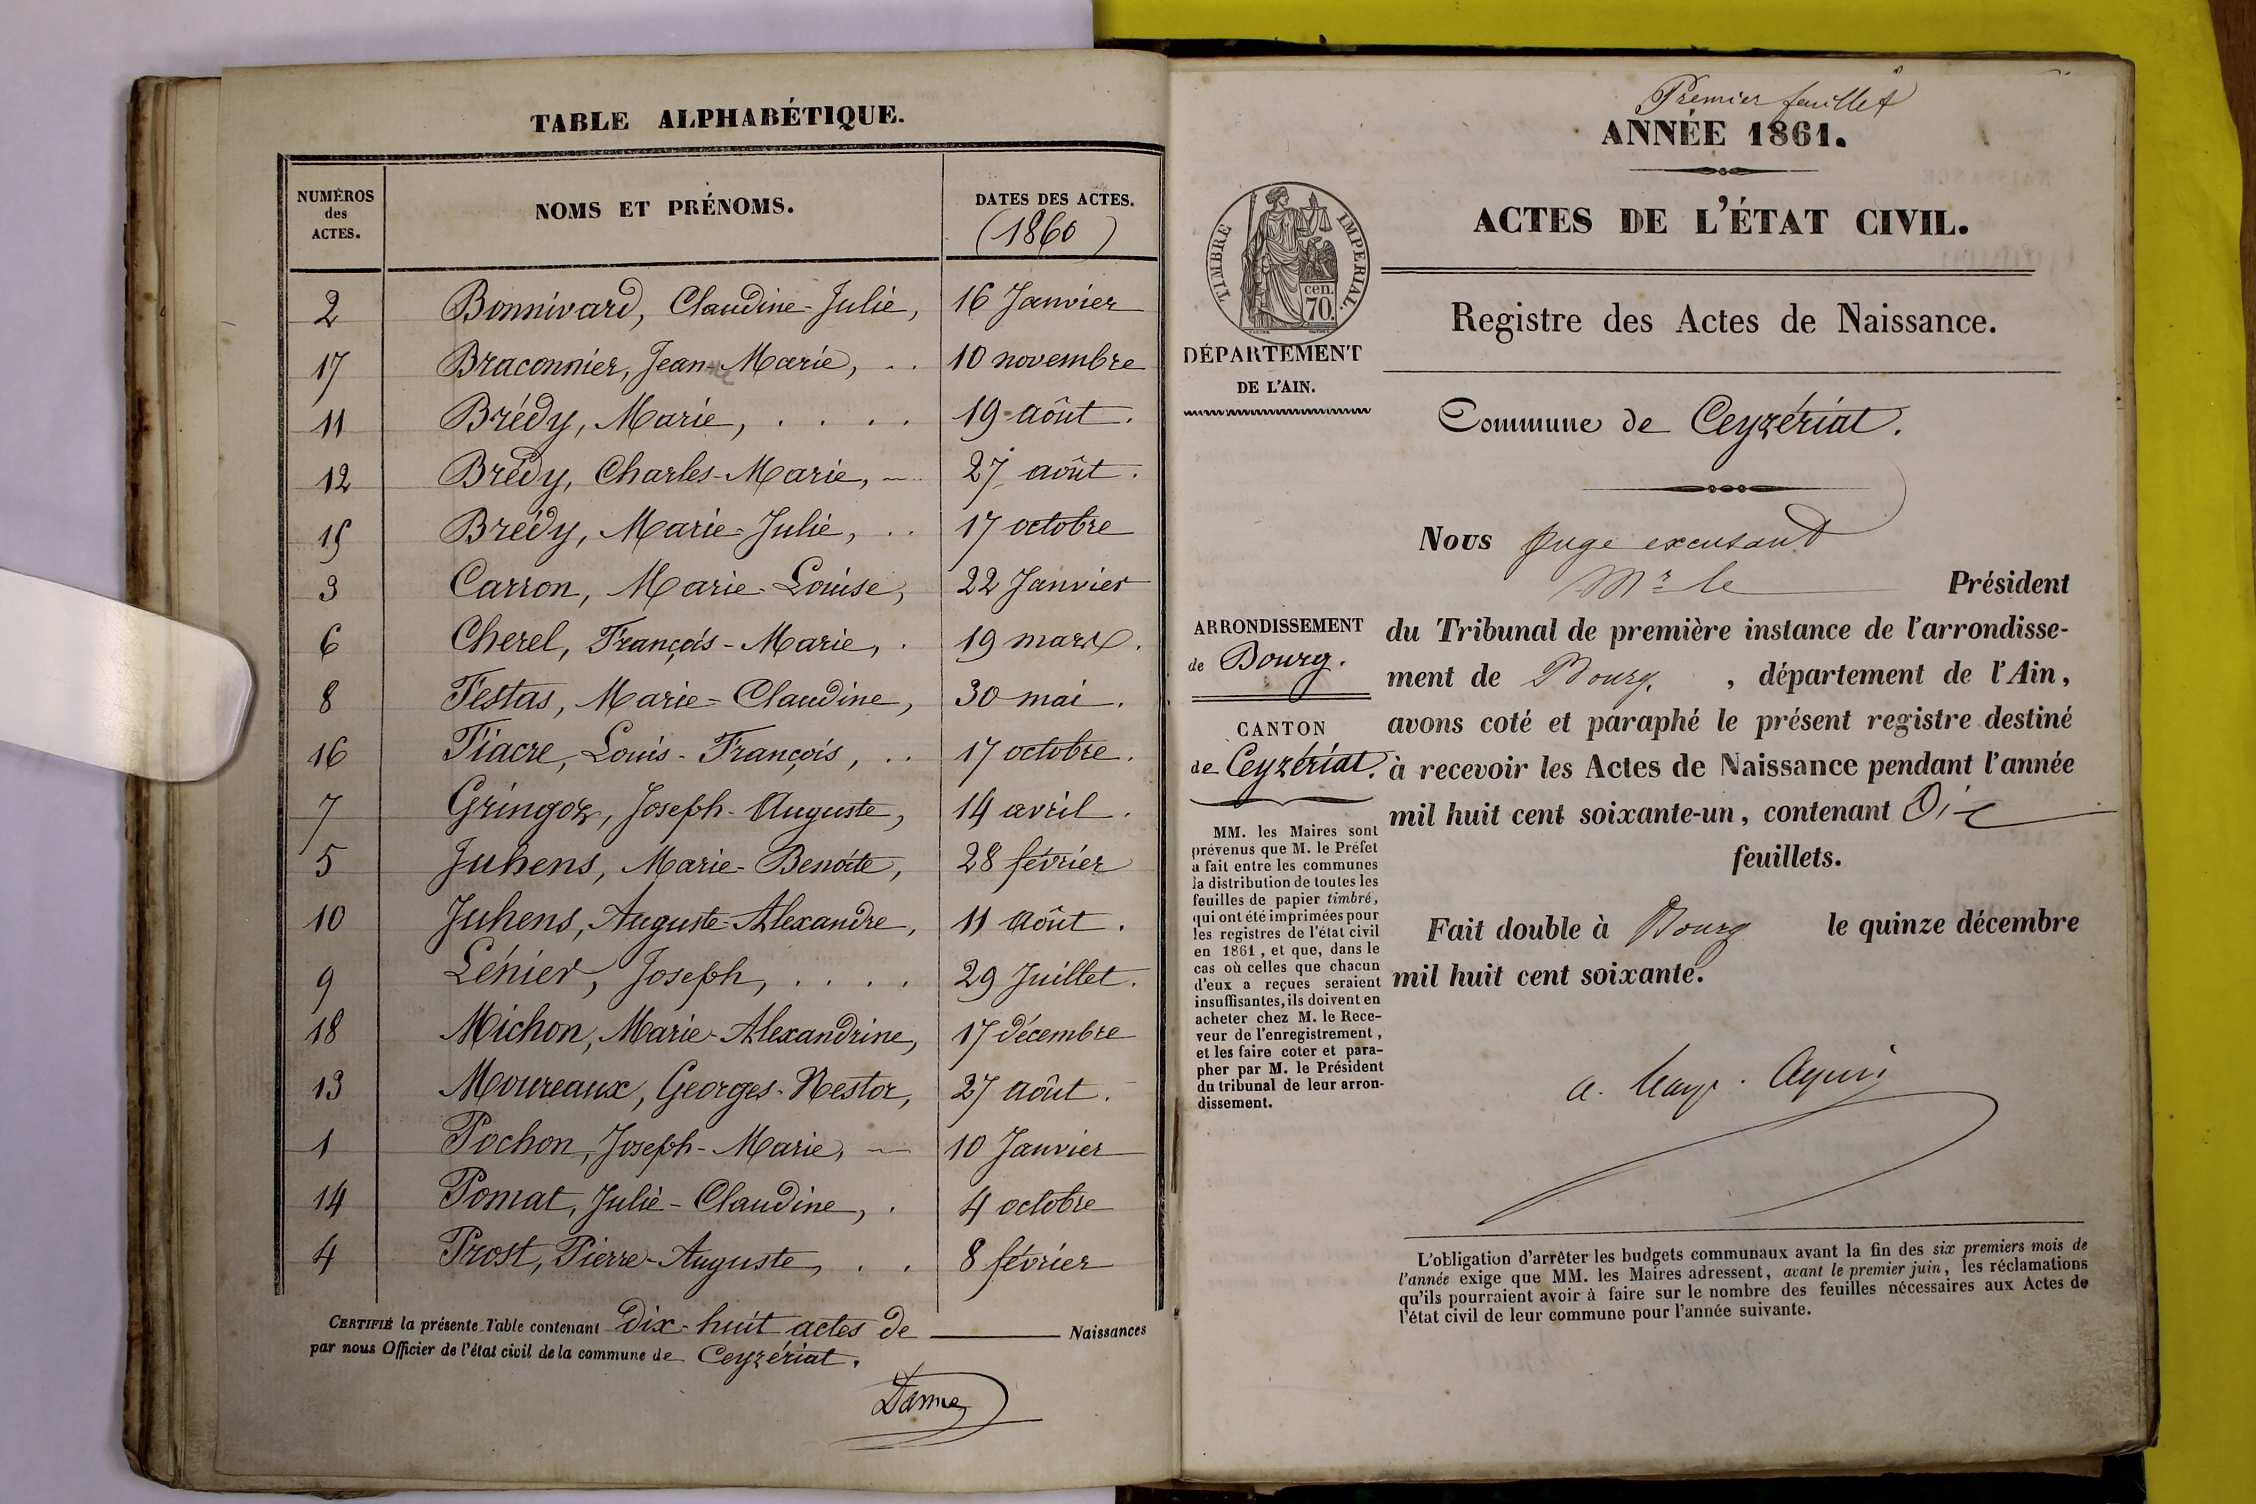 TABLE ALPHABÉTIQUE.
NUMÉROS des ACTES.
NOMS ET PRÉNOMS.
DATES DES ACTES.
(1860)
2 Bonnivard, Claudine-Julie, 16 Janvier
17 Braconnier, Jean-Marie, 10 novembre
11 Brédy, Marie, . . . . 19 août.
12 Brédy, Charles-Marie, 27 août.
15 Brédy, Marie-Julie, . . 17 octobre
3 Carron, Marie-Louise, 22 Janvier
6 Cherel, François-Marie, . 19 mars.
8 Festas, Marie-Claudine, 30 mai.
16 Fiacre, Louis-François, . . 17 octobre.
7 Gringoz, Joseph-Auguste, 14 avril.
5 Juhens, Marie-Benoîte, 28 février
10 Juhens, Auguste-Alexandre, 11 août.
9 Lénier, Joseph, . . . . 29 Juillet.
18 Michon, Marie-Alexandrine, 17 décembre
13 Moureaux, Georges-Nestor, 27 août.
1 Pochon, Joseph-Marie, 10 Janvier
14 Pomat, Julie-Claudine, . 4 octobre
4 Prost, Pierre-Auguste, . . 8 février
CERTIFIÉ la présente Table contenant dix-huit actes de Naissances
par nous Officier de l'état civil de la commune de Ceyzériat.
Premier feuillet
ANNÉE 1861.
ACTES DE L'ÉTAT CIVIL.
TIMBRE IMPERIAL.
cen.
70.
Registre des Actes de Naissance.
DÉPARTEMENT
DE L'AIN.
Commune de Ceyzériat.
Nous Juge excusant
Mr le Président
ARRONDISSEMENT
de Bourg.
CANTON
de Ceyzériat.
du Tribunal de première instance de l'arrondisse-
ment de Bourg, département de l'Ain,
avons coté et paraphé le présent registre destiné
à recevoir les Actes de Naissance pendant l'année
mil huit cent soixante-un, contenant Dix
feuillets.
Fait double à Bourg le quinze décembre
mil huit cent soixante.
MM. les Maires sont
prévenus que M. le Préfet
a fait entre les communes
la distribution de toutes les
feuilles de papier timbré,
qui ont été imprimées pour
les registres de l'état civil
en 1861, et que, dans le
cas où celles que chacun
d'eux a reçues seraient
insuffisantes, ils doivent en
acheter chez M. le Rece-
veur de l'enregistrement,
et les faire coter et para-
pher par M. le Président
du tribunal de leur arron-
dissement.
L'obligation d'arrêter les budgets communaux avant la fin des six premiers mois de
l'année exige que MM. les Maires adressent, avant le premier juin, les réclamations
qu'ils pourraient avoir à faire sur le nombre des feuilles nécessaires aux Actes de
l'état civil de leur commune pour l'année suivante.